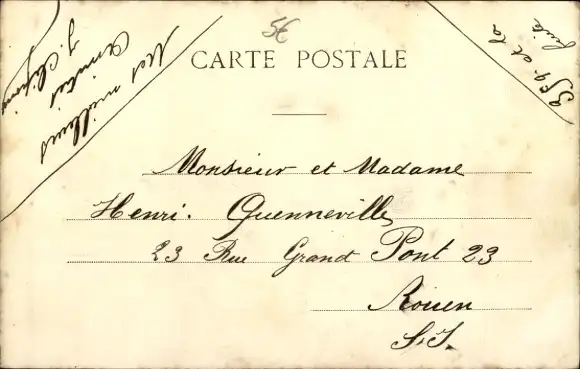 5€
CARTE POSTALE
Mes meilleures
Amitiés
359 et la
suite
Monsieur et Madame
Henri. Quenneville
23 Rue Grand Pont 23
Rouen
S.I.